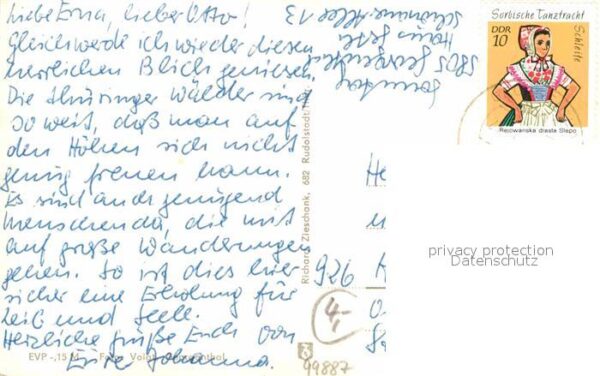 Liebe Erna, lieber Otto!
Gleich werde ich wieder diesen
herrlichen Blick geniessen.
Die Thüringer Wälder sind
so weit, daß man auf
den Höhen sich nicht
genug freuen kann.
Es sind auch genügend
Menschen da, die mit
auf große Wanderungen
gehen. So ist dies hier
sicher eine Erholung für
Leib und Seele.
Herzliche Grüße Euch von
Eure Johanna.
EVP -,15 M
Richard Zieschank, 682 Rudolstadt
Sorbische Tanztracht
Schleife
DDR
10
Rejowanska drasta Slepo
5805
13
926
privacy protection
Datenschutz
4,-
99887